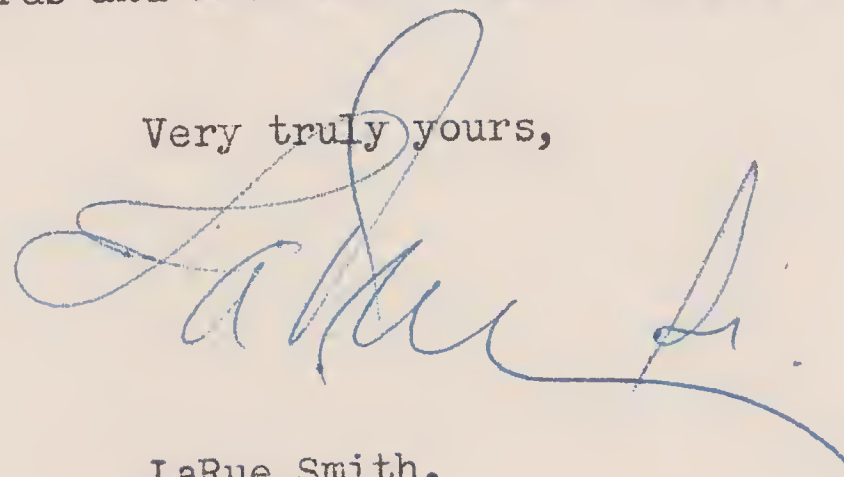 Very truly yours,
LaRue S
LaRue Smith.